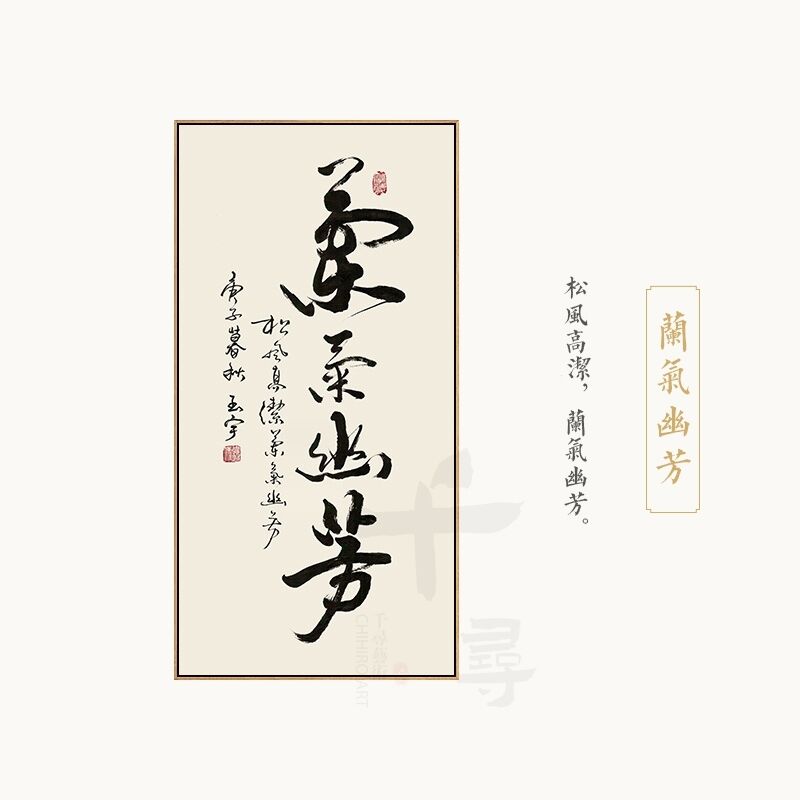 蘭氣幽芳
松風高潔，蘭氣幽芳。
蘭氣幽芳
松風高潔蘭氣幽芳
庚子暮秋 玉宇
千尋
千尋藝術
CHIHIRO ART